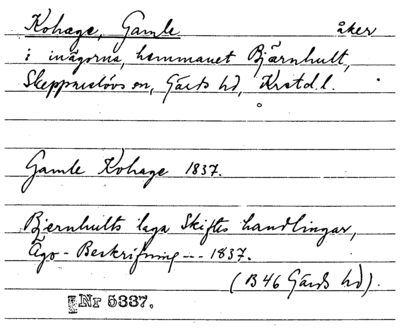 Kohage, Gamle åker
i inägorna, hemmanet Bjärnhult,
Skepparslövs sn, Gärds hd, Krstd.l.
Gamle Kohage 1837.
Bjernhults laga Skiftes handlingar,
Ägo-Beskrifning --- 1837.
(B 46 Gärds hd).
Nr 5337.